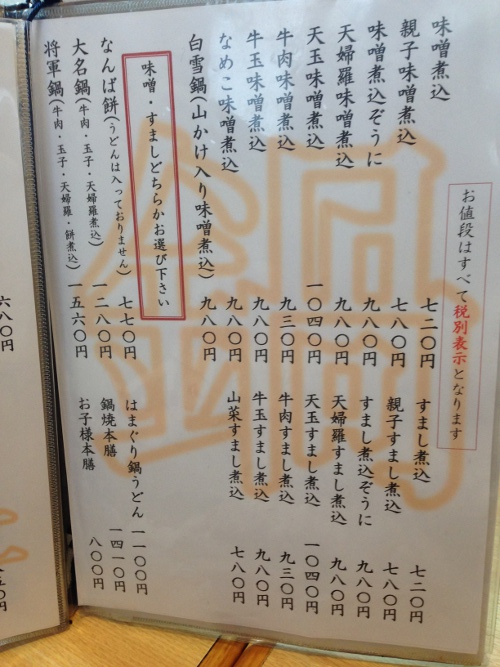 お値段はすべて税別表示となります
味噌煮込 七二〇円
親子味噌煮込 七八〇円
味噌煮込ぞうに 九八〇円
天婦羅味噌煮込 九八〇円
天玉味噌煮込 一〇四〇円
牛肉味噌煮込 九三〇円
牛玉味噌煮込 九八〇円
なめこ味噌煮込 九八〇円
白雪鍋(山かけ入り味噌煮込) 九八〇円
味噌・すましどちらかお選び下さい
なんば餅(うどんは入っておりません) 七七〇円
大名鍋(牛肉・玉子・天婦羅煮込) 一二八〇円
将軍鍋(牛肉・玉子・天婦羅・餅煮込) 一五六〇円
すまし煮込 七二〇円
親子すまし煮込 七八〇円
すまし煮込ぞうに 九八〇円
天婦羅すまし煮込 九八〇円
天玉すまし煮込 一〇四〇円
牛肉すまし煮込 九三〇円
牛玉すまし煮込 九八〇円
山菜すまし煮込 七八〇円
はまぐり鍋うどん 一一〇〇円
鍋焼本膳 一四一〇円
お子様本膳 八〇〇円
六八〇円